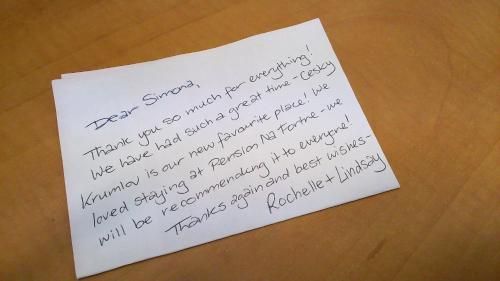 Dear Simona,
Thank you so much for everything!
We have had such a great time - Cesky
Krumlov is our new favourite place! We
loved staying at Pension Na Fortne - we
will be recommending it to everyone!
Thanks again and best wishes -
Rochelle + Lindsay